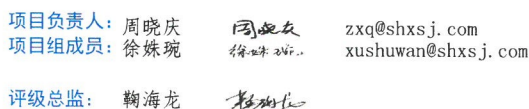 项目负责人：周晓庆 周晓庆 zxq@shxsj.com
项目组成员：徐姝琬 徐姝琬 xushuwan@shxsj.com
评级总监：鞠海龙 鞠海龙